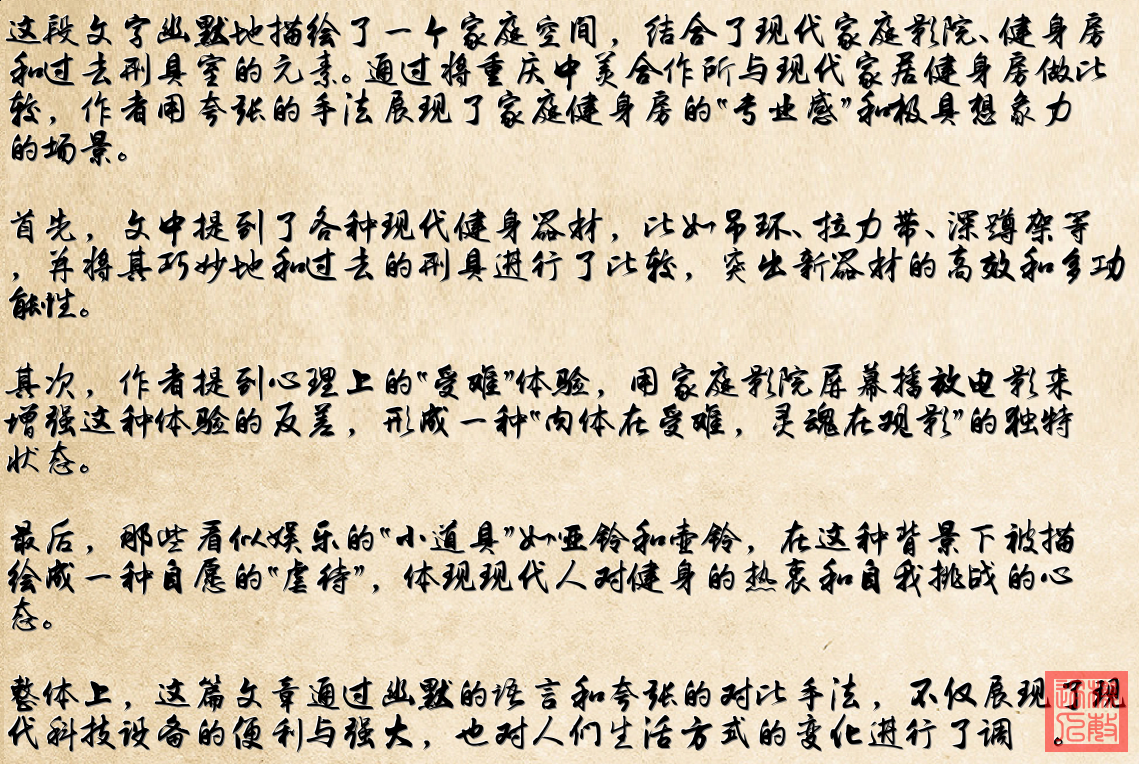 这段文字幽默地描绘了一个家庭空间，结合了现代家庭影院、健身房
和过去刑具室的元素。通过将重庆中美合作所与现代家居健身房做比
较，作者用夸张的手法展现了家庭健身房的“专业感”和极具想象力
的场景。
首先，文中提到了各种现代健身器材，比如吊环、拉力带、深蹲架等
，并将其巧妙地和过去的刑具进行了比较，突出新器材的高效和多功
能性。
其次，作者提到心理上的“受难”体验，用家庭影院屏幕播放电影来
增强这种体验的反差，形成一种“肉体在受难，灵魂在观影”的独特
状态。
最后，那些看似娱乐的“小道具”如哑铃和壶铃，在这种背景下被描
绘成一种自愿的“虐待”，体现现代人对健身的热衷和自我挑战的心
态。
整体上，这篇文章通过幽默的语言和夸张的对比手法，不仅展现了现
代科技设备的便利与强大，也对人们生活方式的变化进行了调 。